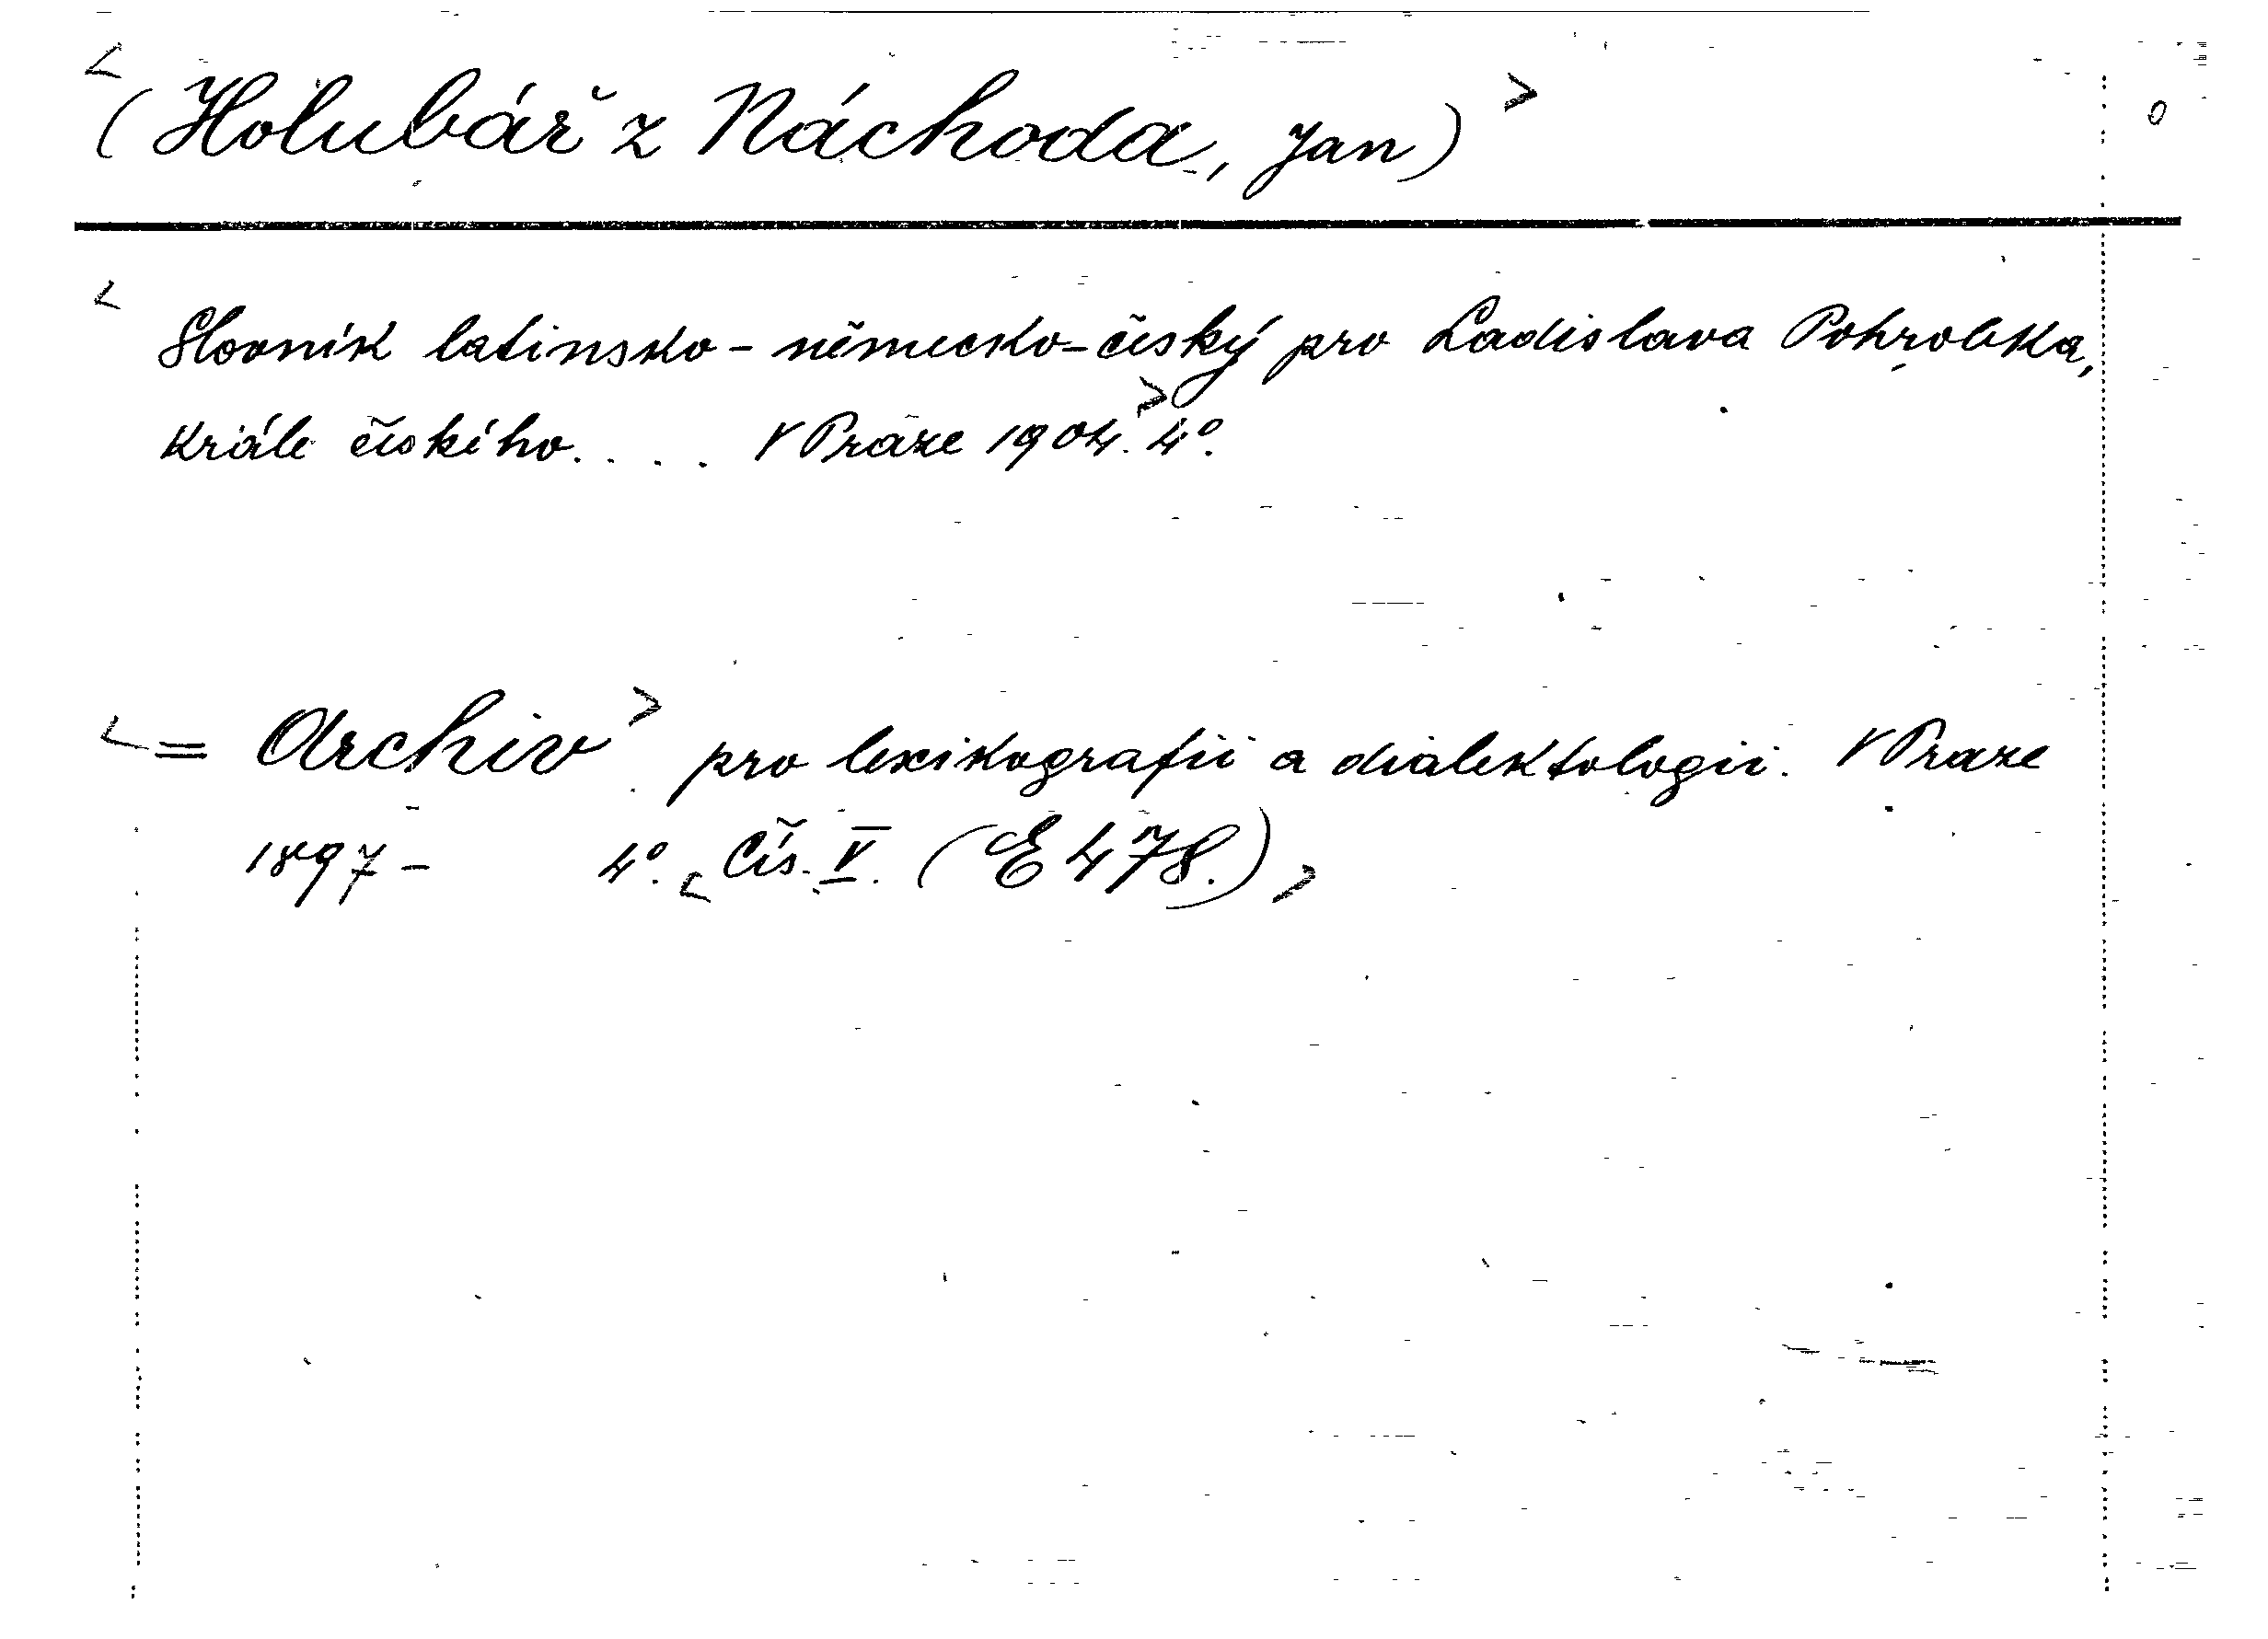 <(Holubář z Náchoda, Jan)> 0
<Slovník latinsko-německo-český pro Ladislava Pohrobka,
krále českého. . . . V Praze 1904.> 4°.
<= Archiv> pro lexikografii a dialektologii. V Praze
1897- 4°. <Čís. V. (E 478.)>